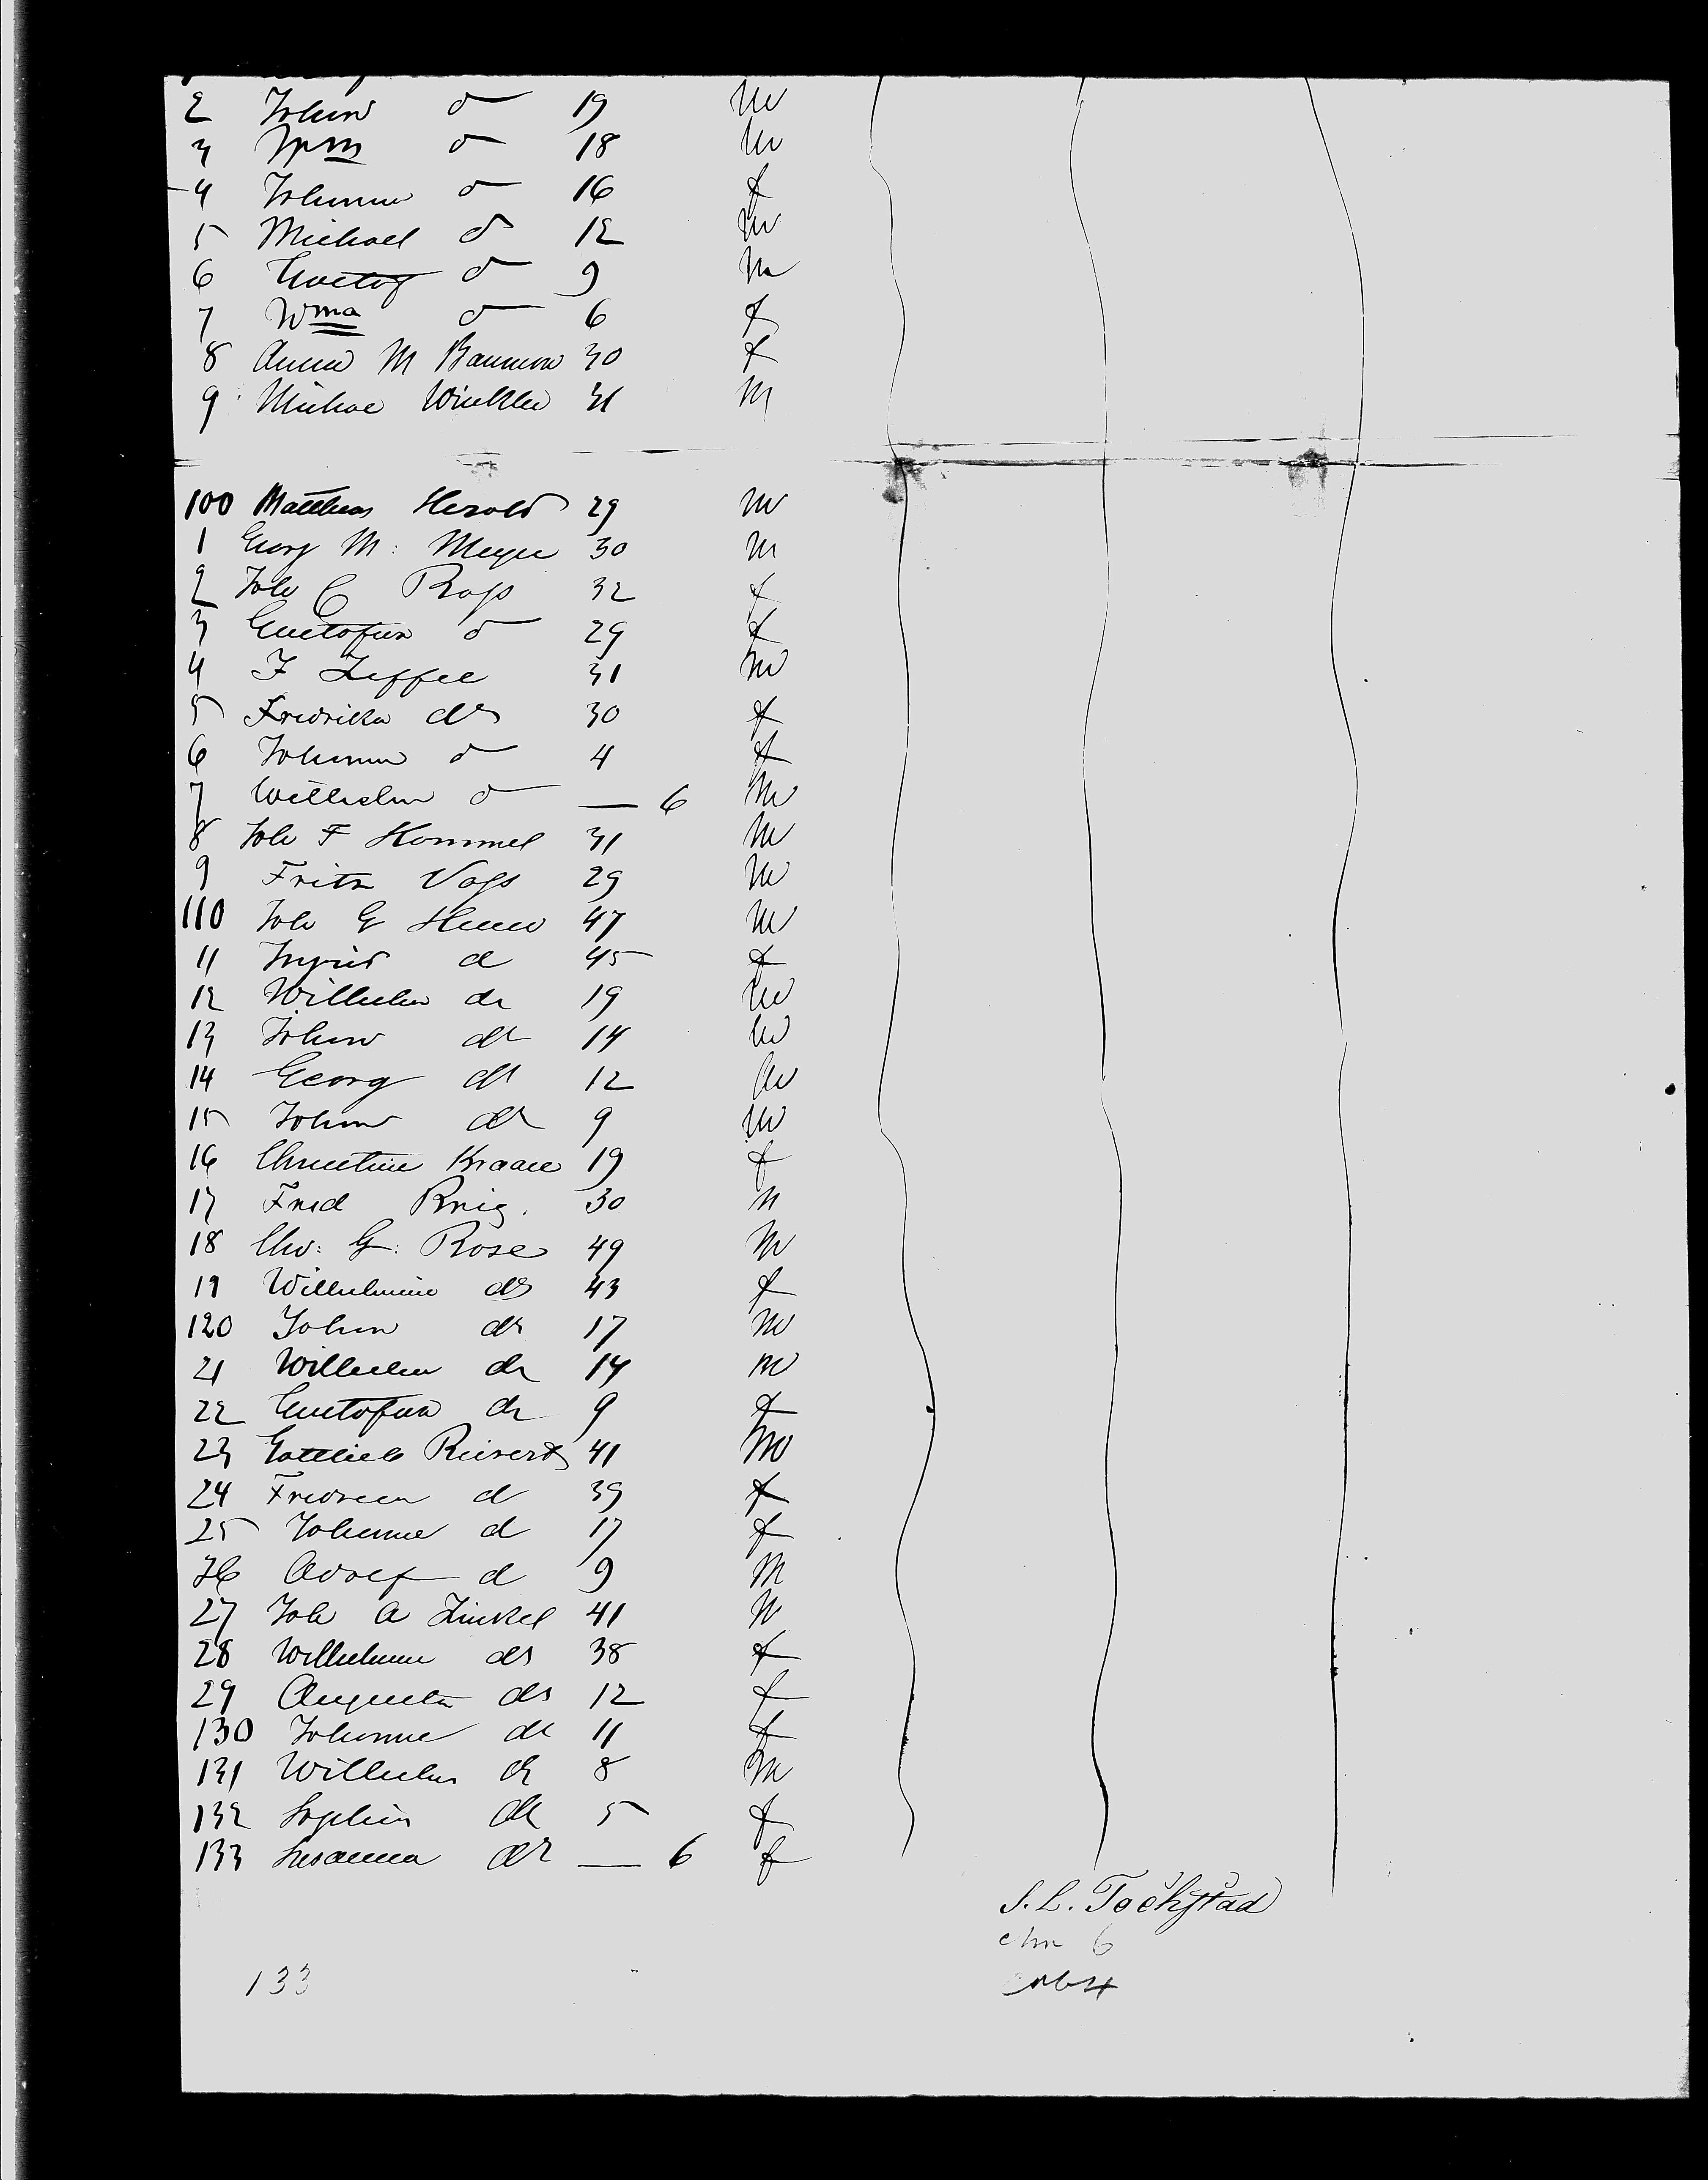 2 Johann do 19 m
3 Wm do 18 m
4 Johanna do 16 f
5 Michael do 12 m
6 Gustof do 9 m
7 Wma do 6 f
8 Anna M 30 f
9 Michae Winkler 31 m
100 Matthias Herold 29 m
1 Georg M: Meyer 30 m
2 Joh C Rass 32 f
3 Gustofina do 29 f
4 F Zeffel 31 m
5 Fredrika do 30 f
6 Johanna do 4 f
7 Wilhelm do — 6 m
8 Joh F Hommel 31 m
9 Fritz Voss 29 m
110 Joh G 47 m
11 do 45 f
12 Wilhelm do 19 m
13 Johan do 14 m
14 Georg do 12 m
15 Johan do 9 m
16 Christine 19 f
17 Fred 30 m
18 Chr: G: Rose 49 m
19 Wilhelmine do 43 f
120 Johan do 17 m
21 Wilhelm do 14 m
22 Gustofina do 9 f
23 Gottlieb 41 m
24 do 39 f
25 Johanne d 17 f
26 Adolf d 9 m
27 Joh A Zinkel 41 m
28 Wilhelmine do 38 f
29 Augusta do 12 f
130 Johanne do 11 f
131 Wilhelm do 8 m
132 Sophia do 5 f
133 Susanna do — 6 f
S. L.
6
133